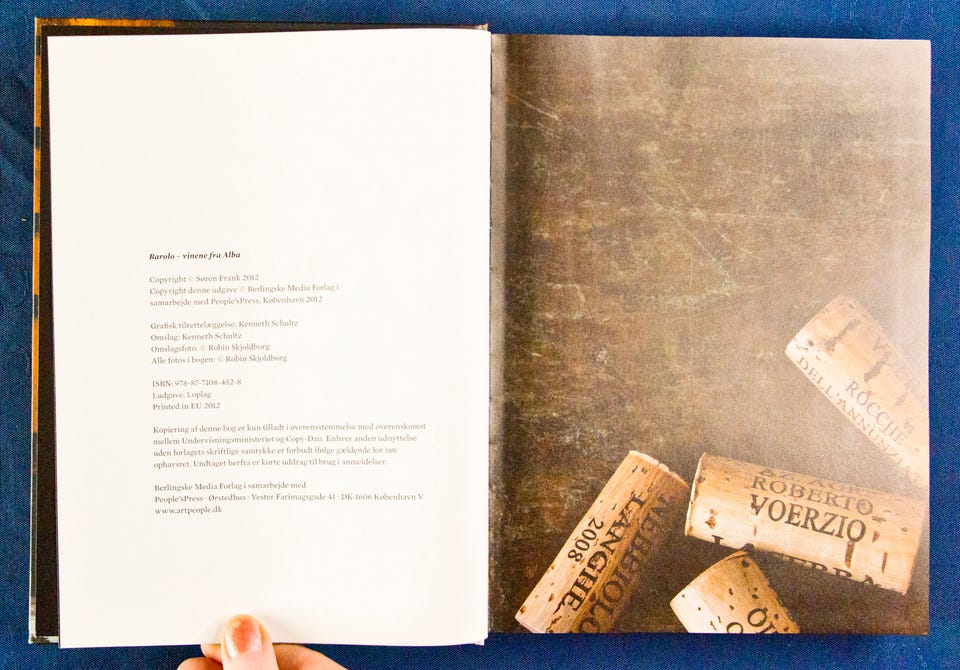 Barolo – vinene fra Alba
Copyright © Søren Frank 2012
Copyright denne udgave © Berlingske Media Forlag i
samarbejde med People'sPress, København 2012
Grafisk tilrettelæggelse: Kenneth Schultz
Omslag: Kenneth Schultz
Omslagsfoto: © Robin Skjoldborg
Alle fotos i bogen: © Robin Skjoldborg
ISBN: 978-87-7108-452-8
1.udgave, 1.oplag
Printed in EU 2012
Kopiering af denne bog er kun tilladt i overensstemmelse med overenskomst
mellem Undervisningsministeriet og Copy-Dan. Enhver anden udnyttelse
uden forlagets skriftlige samtykke er forbudt ifølge gældende lov om
ophavsret. Undtaget herfra er korte uddrag til brug i anmeldelser.
Berlingske Media Forlag i samarbejde med
People'sPress · Ørstedhus · Vester Farimagsgade 41 · DK-1606 København V
www.artpeople.dk
ROCCHE
DELL'ANNUNZIA
ROBERTO
VOERZIO
NEBBIOLO
LANGHE
2008